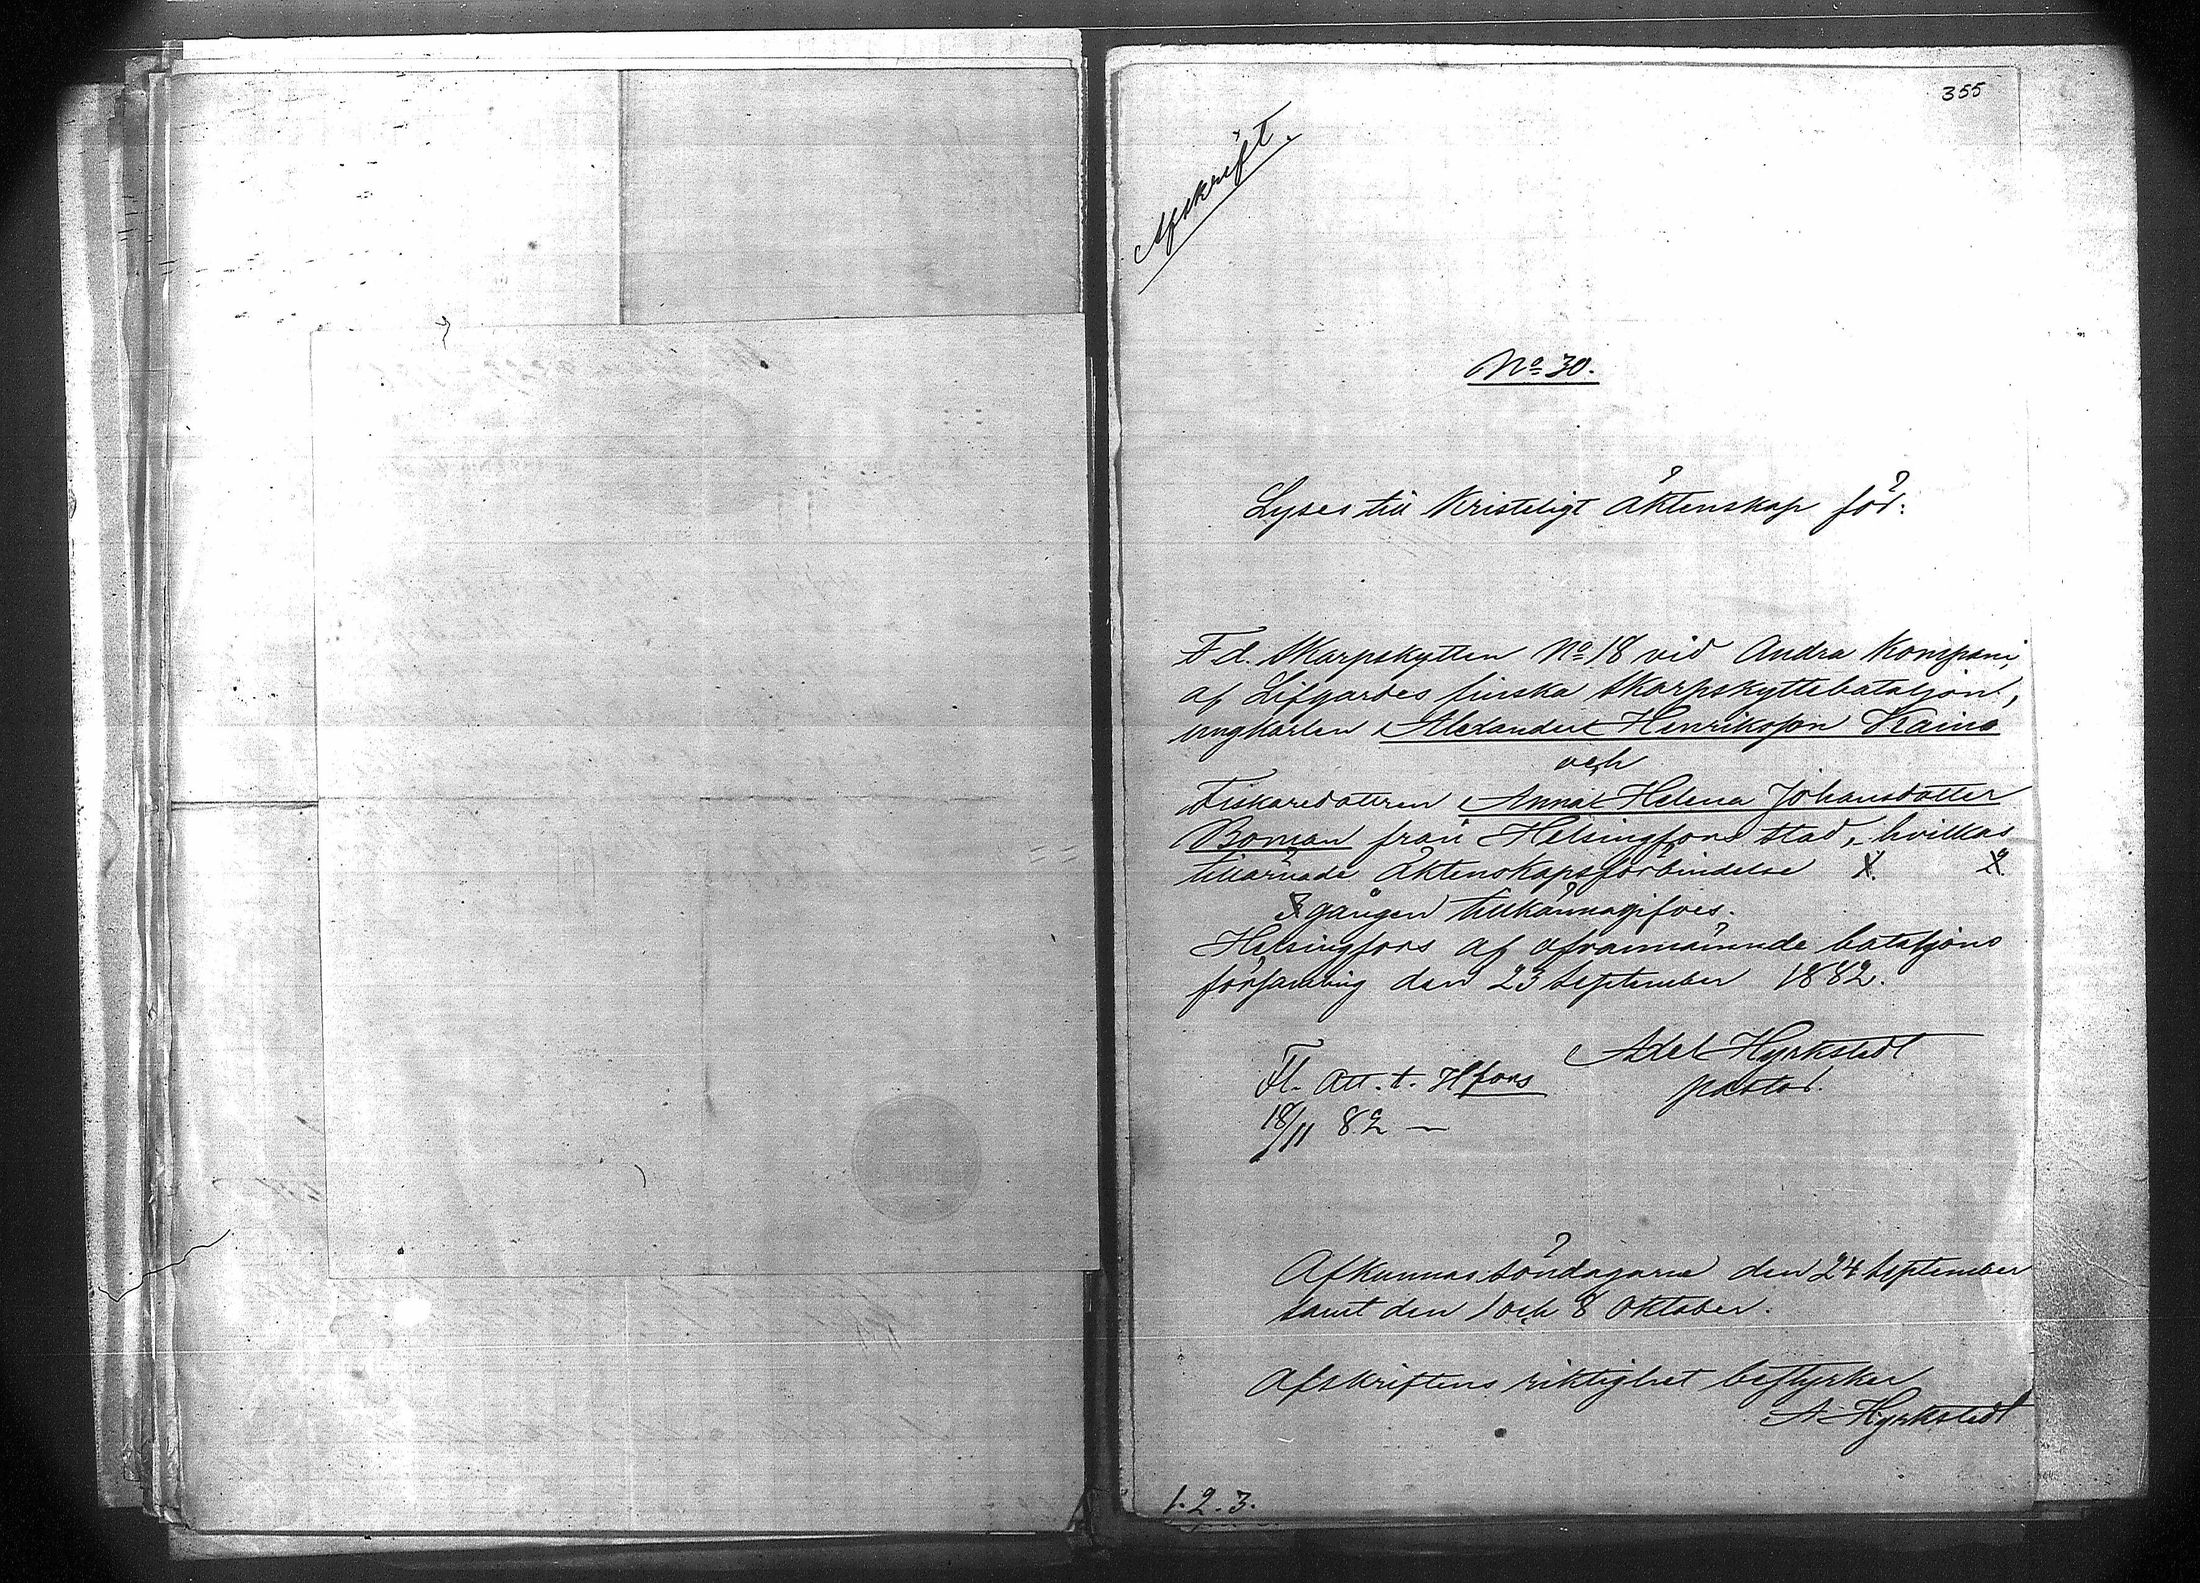 355
Afskrift.
No 30.
Lyses till Kristeligt äktenskap för:
F d. Skarpskytten No 18 vid Andra Kompani
af Lifgardes finska Skarpskyttebataljon,
ungkarlen Alexander Henriksson Kaino
och
Fiskaredottren Anna Helena Johansdotter
Boman från Helsingfors stad, hvilkas
tillärnade äktenskapsförbindelse
gången tillkännagifves.
Helsingfors af ofvannämnde bataljons
församling den 23 September 1882.
Adel Hyrkstedt
pastor.
Fl. Att. t. Hfors
18/11 82 —
Afkunnas söndagarne den 24 September
samt den 1 och 8 Oktober.
Afskriftens riktighet bestyrker
A Hyrkstedt
1. 2. 3.